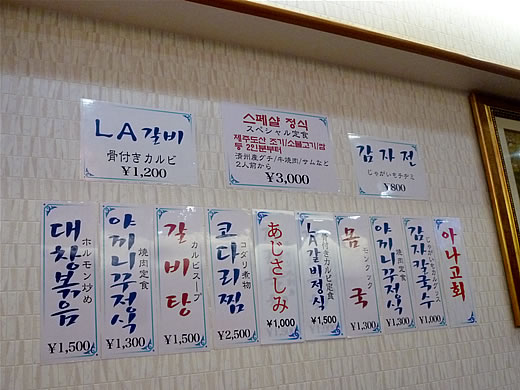 LA갈비
骨付きカルビ
¥1,200
스페샬 정식
スペシャル定食
제주도산 조기/소불고기/쌈
등 2인분부터
済州産グチ/牛焼肉/サムなど
2人前から
¥3,000
감자전
じゃがいもチヂミ
¥800
대창볶음
ホルモン炒め
¥1,500
야끼니꾸정식
焼肉定食
¥1,300
갈비탕
カルビスープ
¥1,500
코다리찜
コダリ煮物
¥2,500
あじさしみ
¥1,000
LA갈비정식
骨付きカルビ定食
¥1,500
몸국
モンクック
¥1,300
야끼니꾸정식
焼肉定食
¥1,300
감자칼국수
じゃがいもカルグクス
¥1,000
아나고회